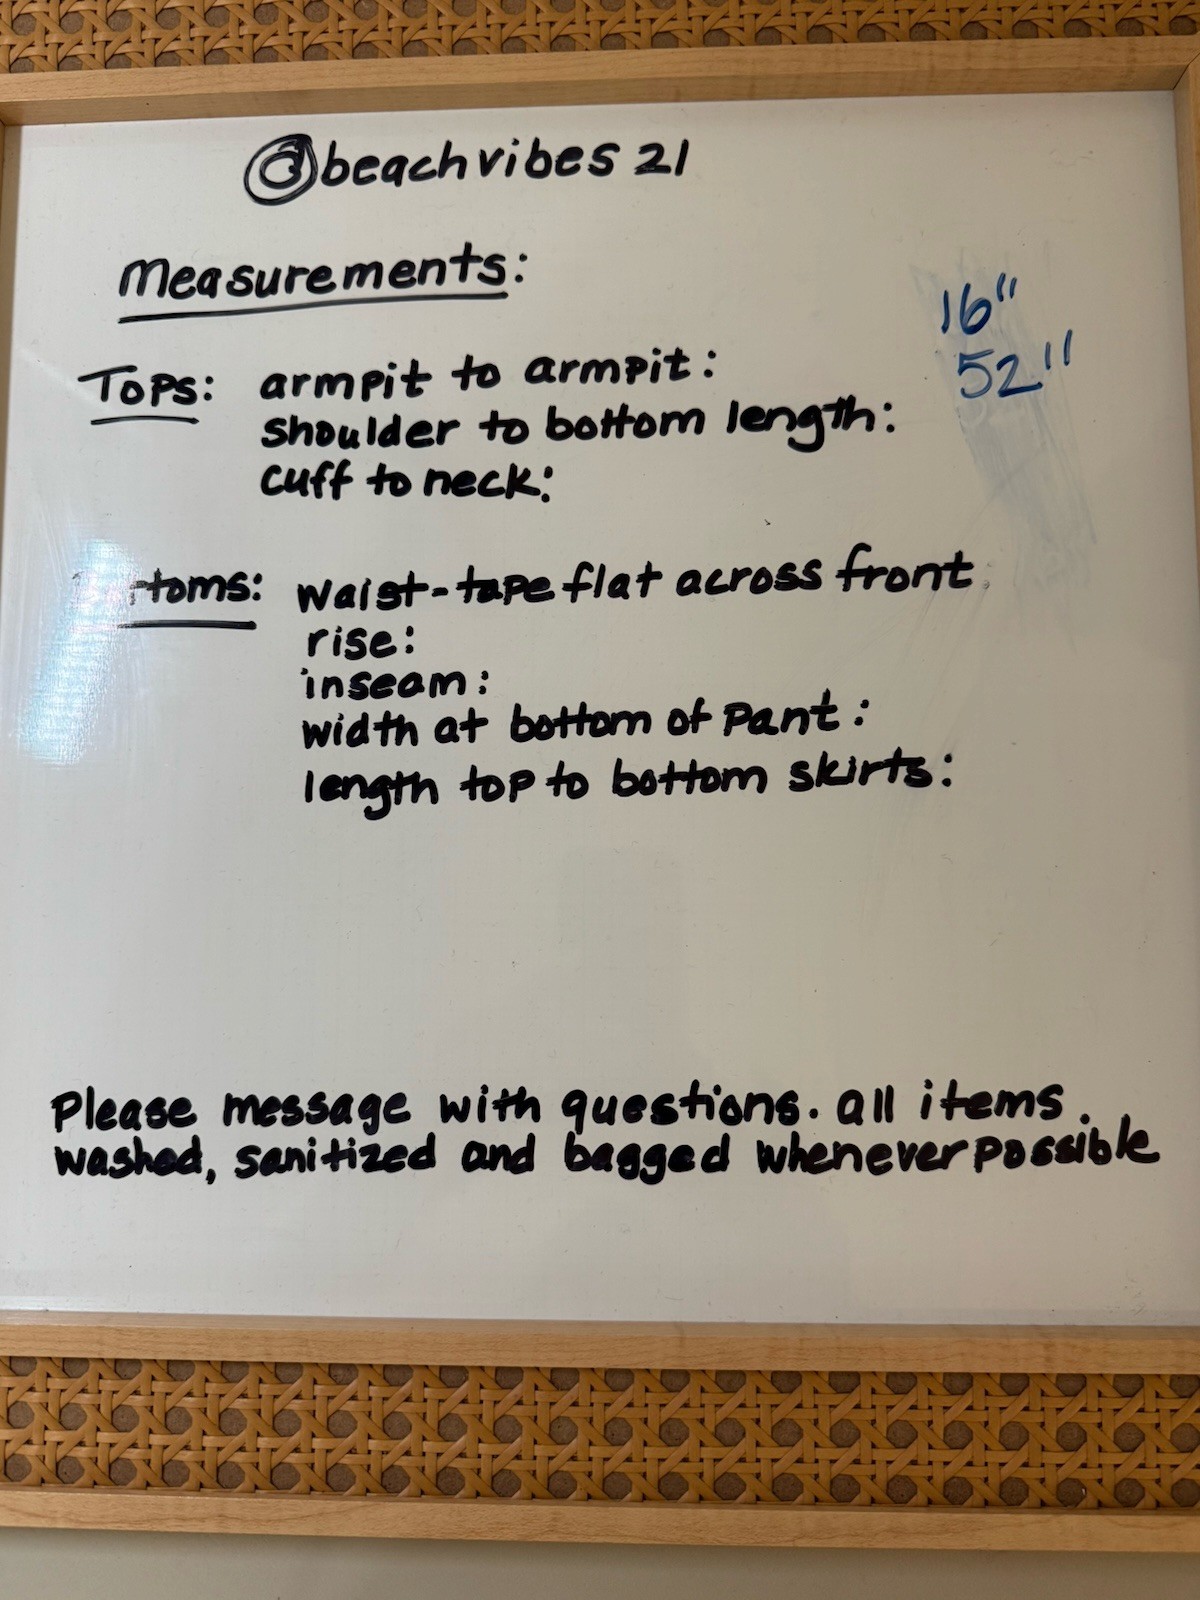 @beachvibes 21
Measurements:
Tops: armpit to armpit: 16"
shoulder to bottom length: 52"
cuff to neck:
toms: waist-tape flat across front
rise:
inseam:
width at bottom of pant:
length top to bottom skirts:
Please message with questions. all items
washed, sanitized and bagged whenever possible.